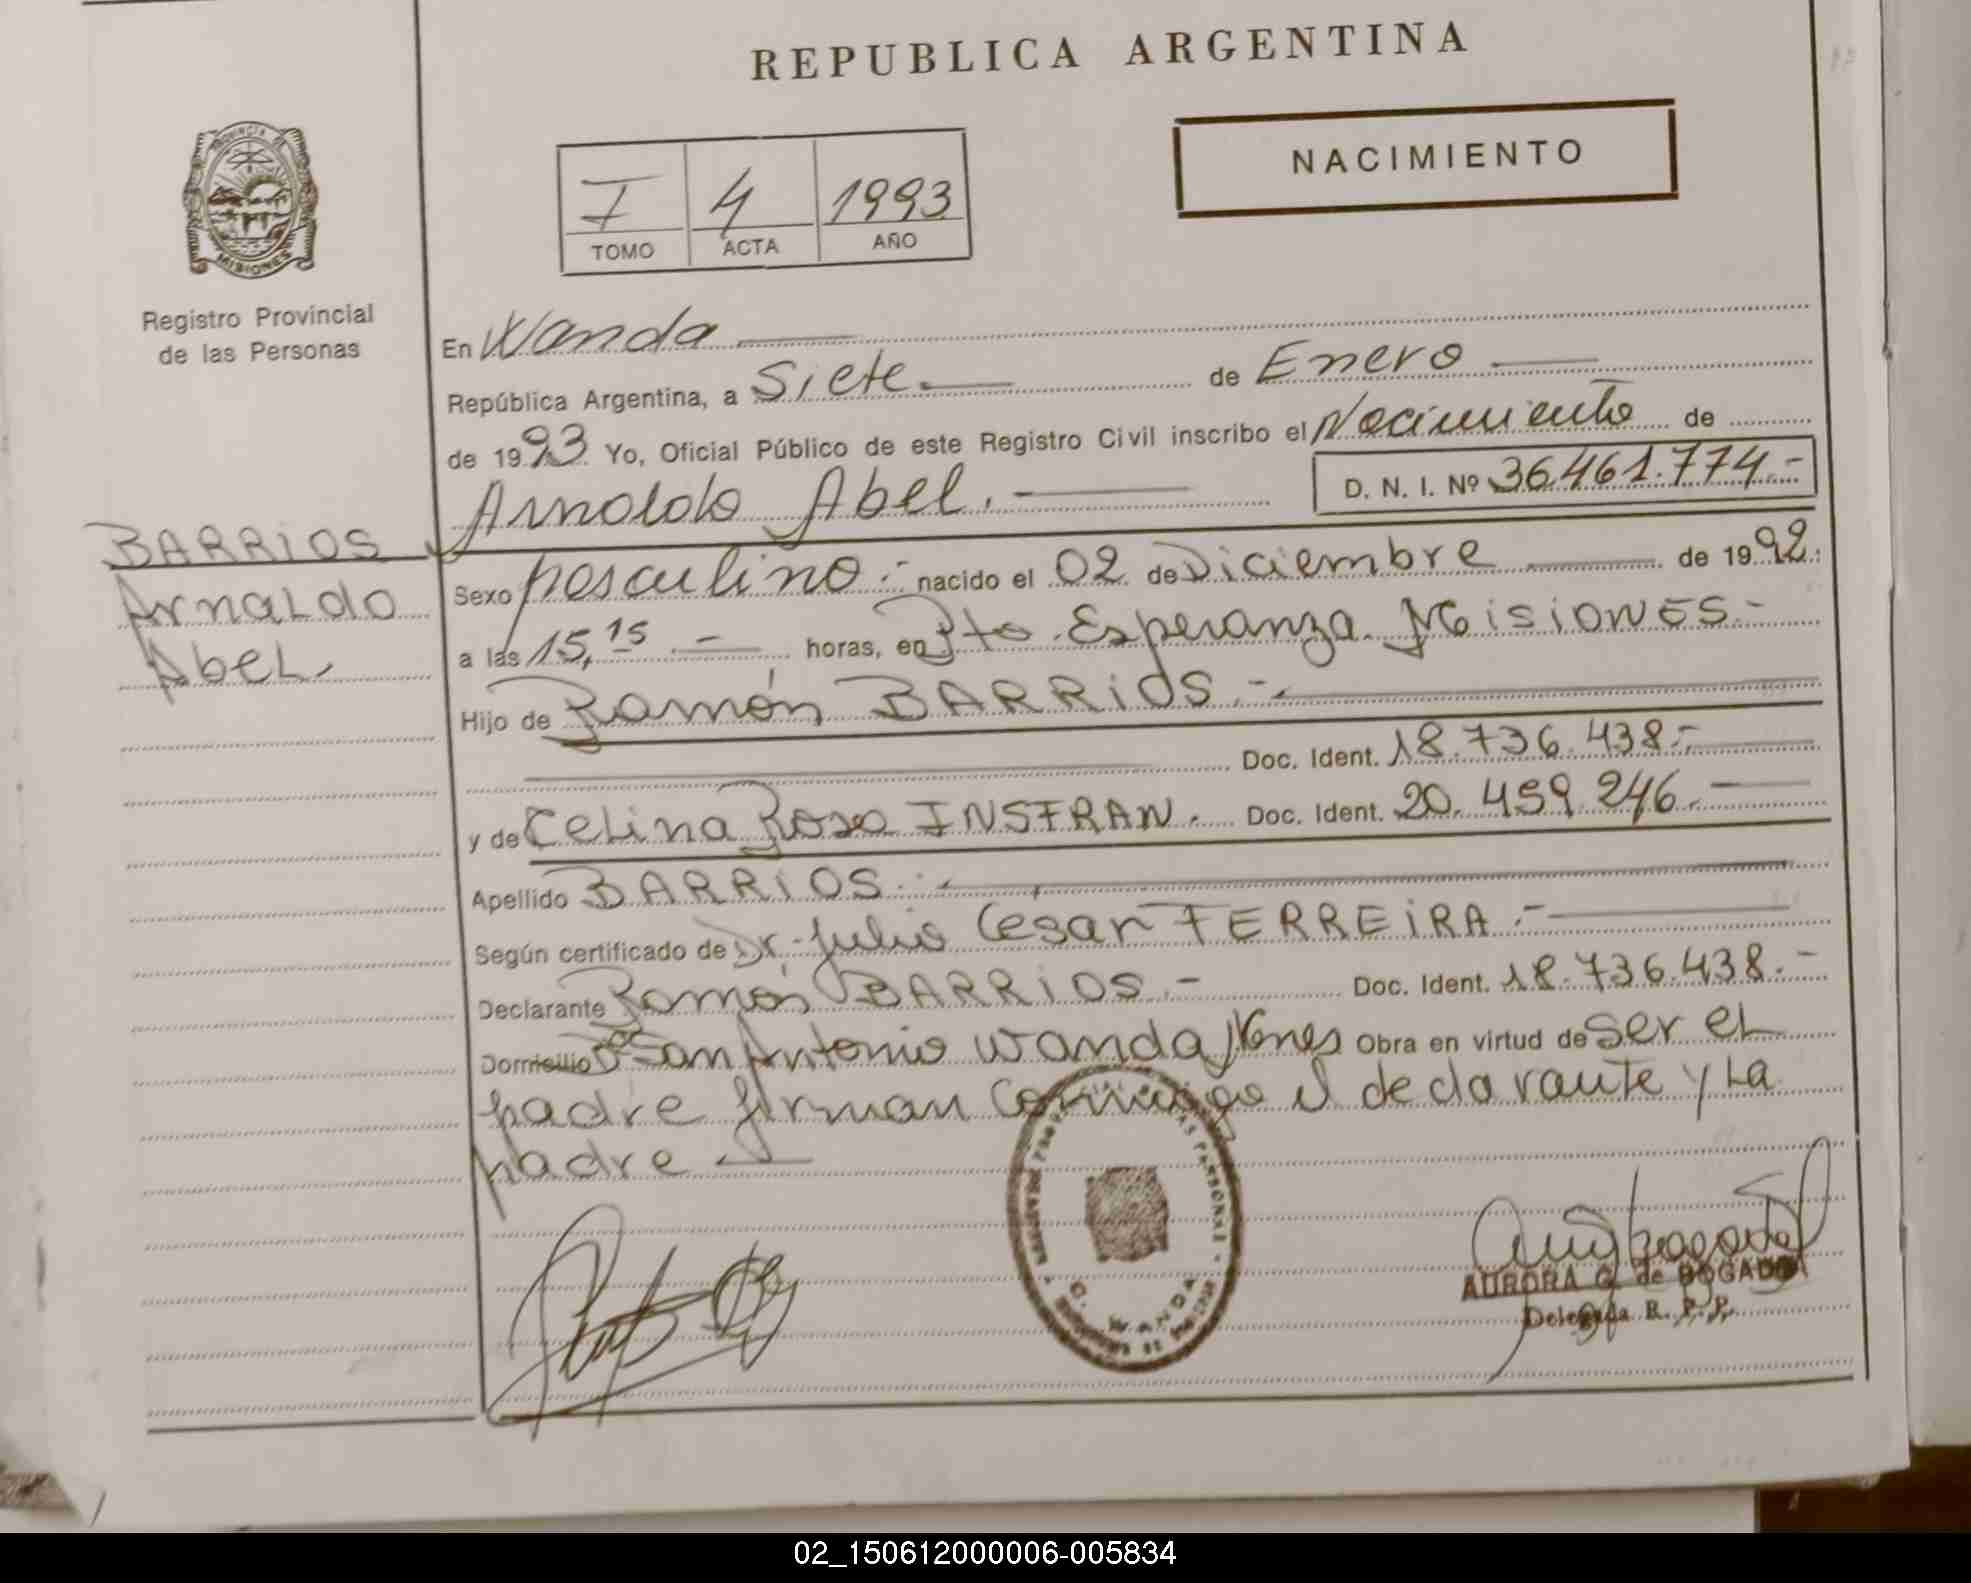 REPUBLICA ARGENTINA
NACIMIENTO
PROVINCIA DE
MISIONES
Registro Provincial
de las Personas
I 4 1993
TOMO ACTA AÑO
En Wanda
República Argentina, a Siete de Enero
de 1993 Yo, Oficial Público de este Registro Civil inscribo el Nacimiento de
Arnoldo Abel. D. N. I. Nº 36.461.774.-
BARRIOS
Arnaldo
Abel.
Sexo Masculino.- nacido el 02 de Diciembre de 1992.
a las 15,15 horas, en Pto Esperanza Misiones.-
Hijo de Ramón BARRIOS.-
Doc. Ident. 18.736.438.-
y de Celina Rosa INSFRAN. Doc. Ident. 20.459.246.-
Apellido BARRIOS.
Según certificado de Dr. Julio Cesar FERREIRA.-
Declarante Ramón BARRIOS.- Doc. Ident. 18.736.438.-
Domicilio San Antonio Wanda Mnes Obra en virtud de Ser el
padre firman conmigo el declarante y La
Madre
WANDA
AURORA G. de BOGADO
Delegada R. P. P.
02_150612000006-005834